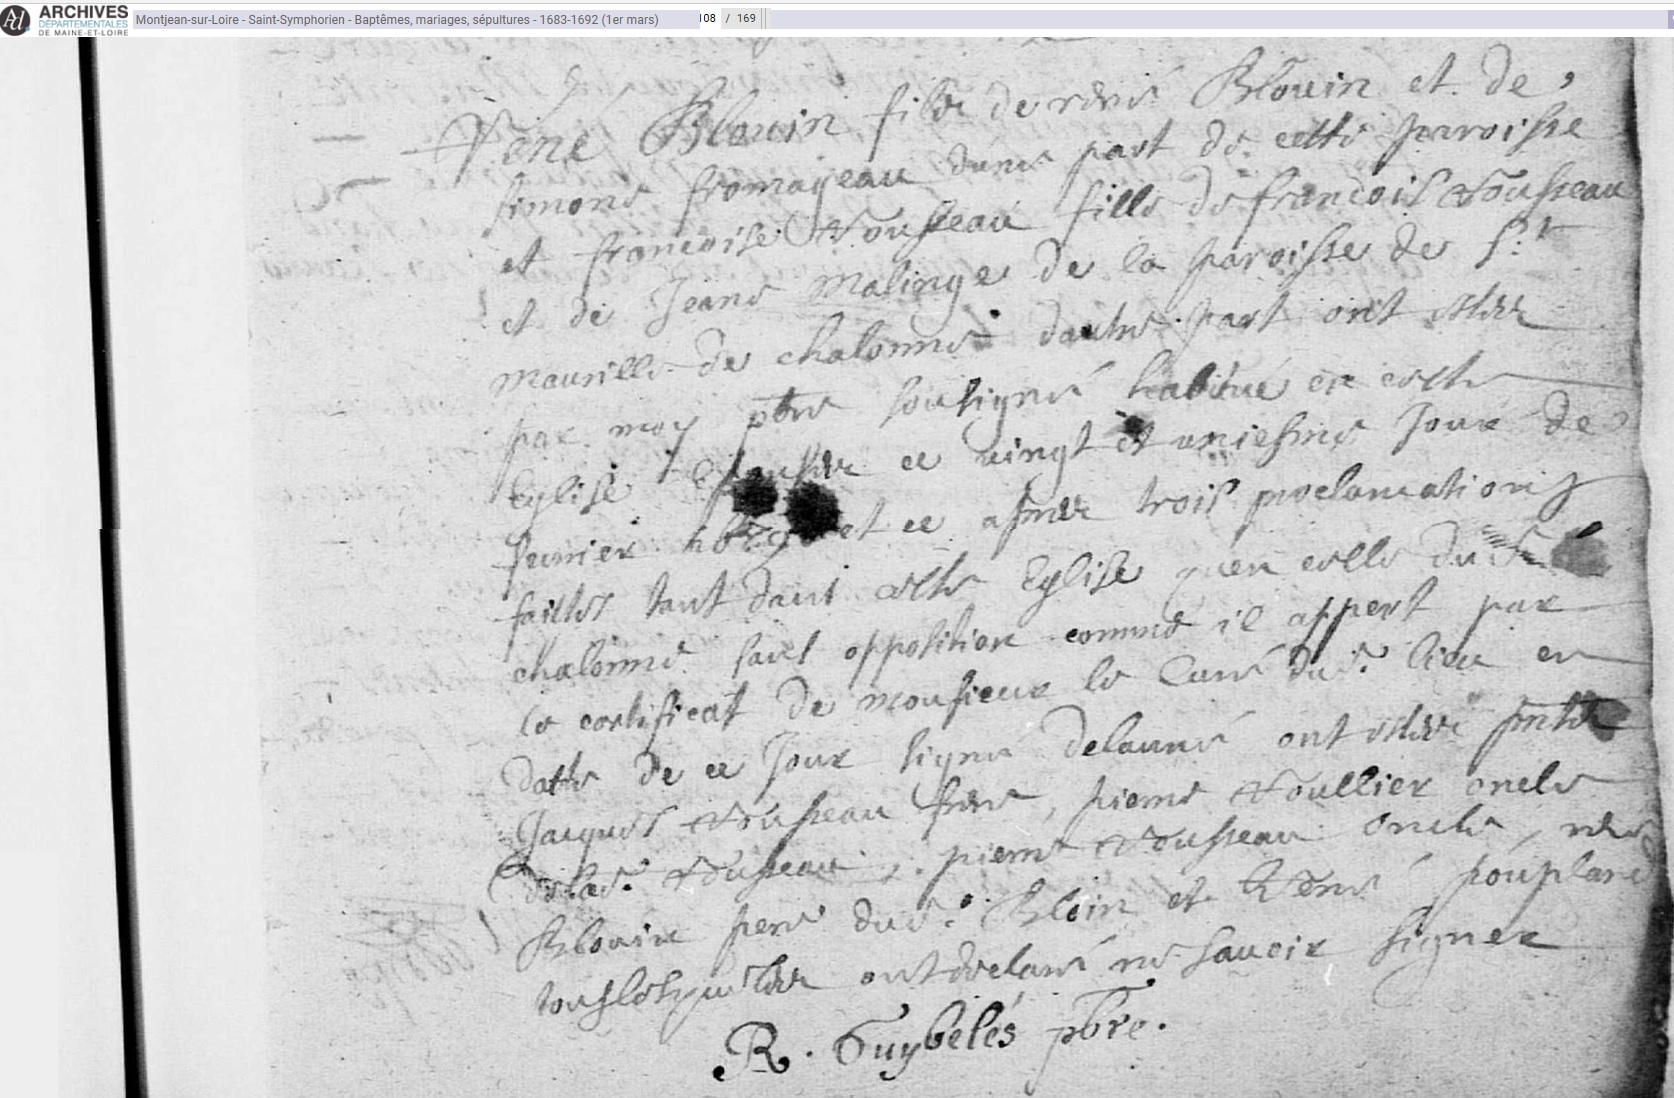 ARCHIVES
DÉPARTEMENTALES
DE MAINE-ET-LOIRE
Montjean-sur-Loire - Saint-Symphorien - Baptêmes, mariages, sépultures - 1683-1692 (1er mars)
108 / 169
René Blouin fils de rené Blouin et de
simone fromageau dune part de cette paroisse
et francoise Rousseau fille de francois Rousseau
et de Jeane Malinge de la paroisse de St
maurille de chalonne dautre part ont estez
par moy pbre soussigné habitué en cette
Eglise Espousez ce vingt et uniesme Jour de
feurier et ce apres trois proclamations
faittes tant dans cette Eglise quen celle du
chalonne sans opposition comme il appert par
le certificat de monsieur le Curé dud. lieu en
datte de ce Jour signé delauné ont estez pnts
Jacques Rousseau frere, pierre Roullier oncle
de lad. Rousseau, pierre Rousseau oncle, rené
Blouin pere dud. Bloin et René pouplard
tous lesquels ont declaré ne sauoir signer
R. Guybelés pbre.